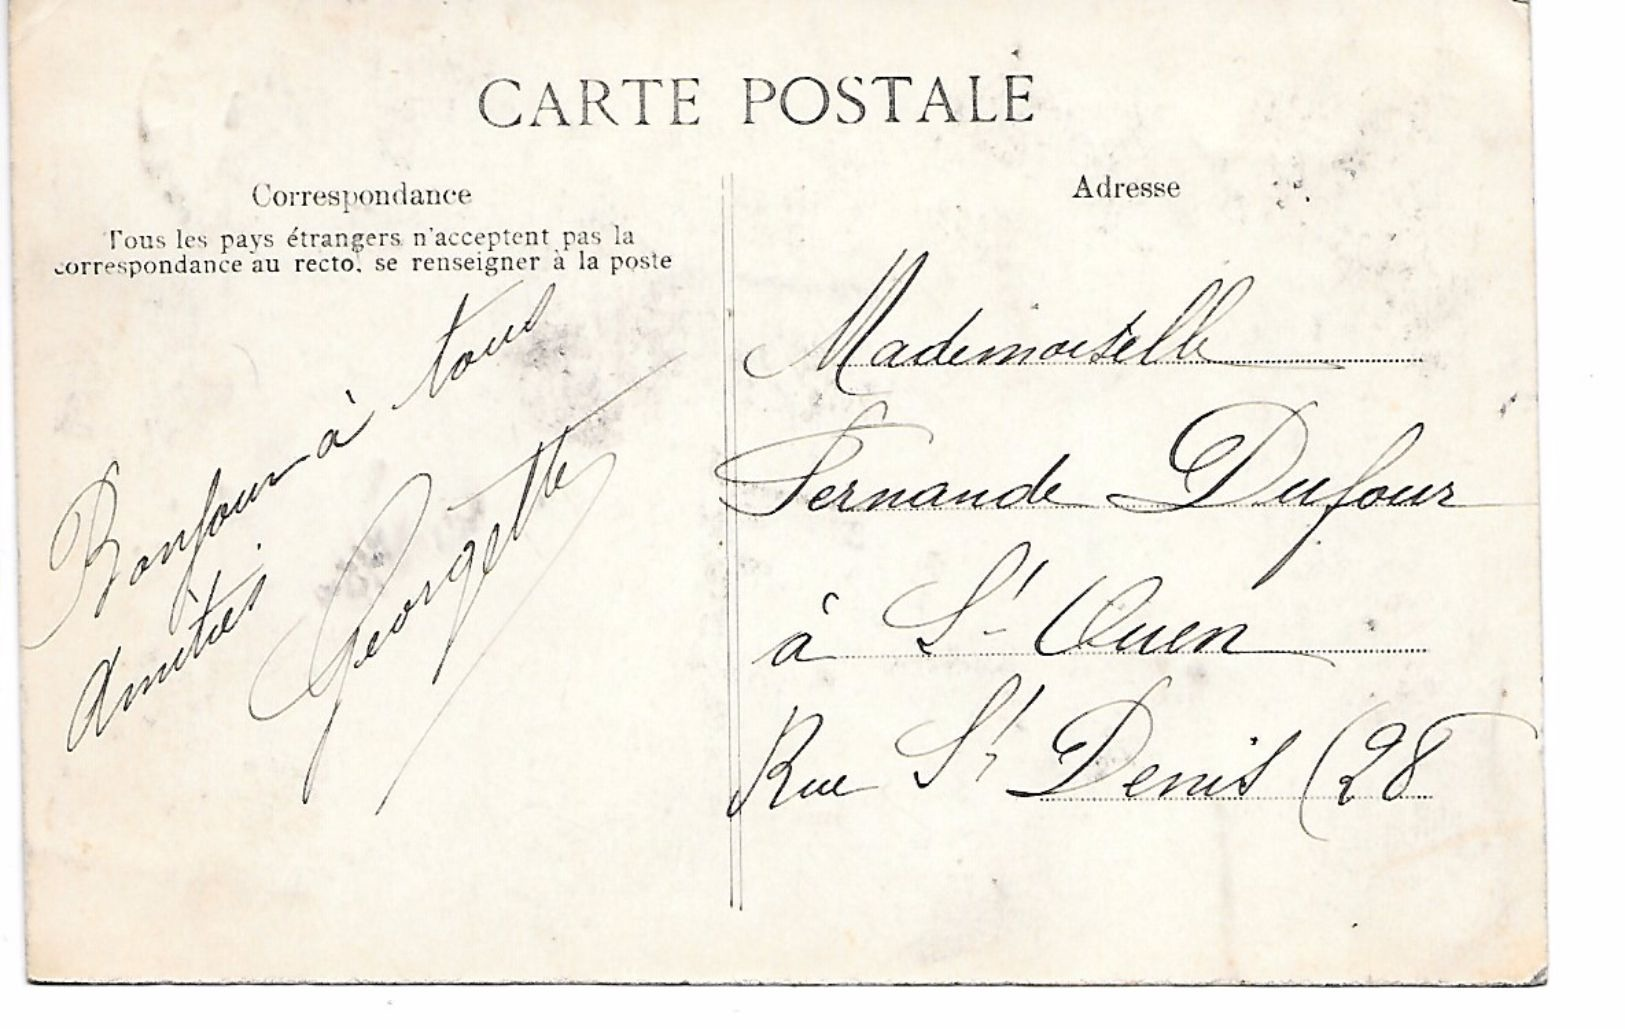 CARTE POSTALE
Correspondance
Tous les pays étrangers n'acceptent pas la
correspondance au recto, se renseigner à la poste
Bonjour à tous
Amitiés
Georgette
Adresse
Mademoiselle
Fernande Dufour
à St Ouen
Rue St Denis (28